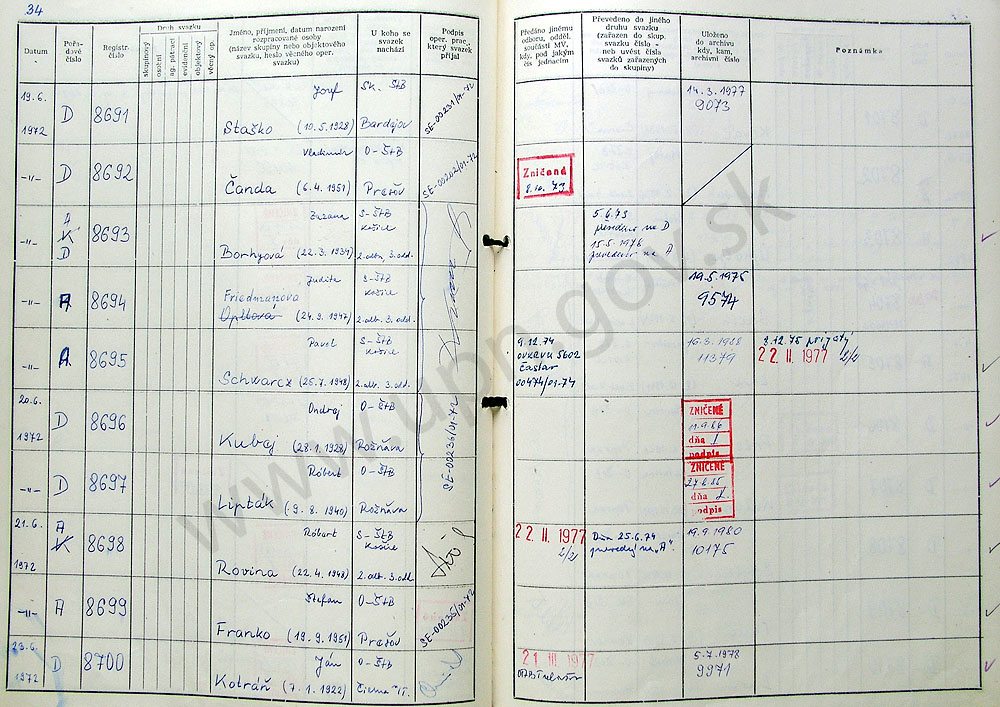 34
Datum
Pořadové číslo
Registr. číslo
Druh svazku
skupinový
osobní
ag. pátrací
evidenční
objektový
věcný op.
Jméno, příjmení, datum narození
rozpracované osoby
(název skupiny nebo objektového
svazku, heslo věcného oper.
svazku)
U koho se
svazek
nachází
Podpis
oper. prac.,
který svazek
přijal
Předáno jinému
odboru, odděl.
součásti MV,
kdy, pod jakým
čís. jednacím
Převedeno do jiného
druhu svazku
(zařazen do skup.
svazku číslo -
neb uvést čísla
svazků zařazených
do skupiny)
Uloženo
do archivu
kdy, kam,
archivní číslo
Poznámka
19.6.
1972
D
8691
Jozef
Staško (10.5.1928)
Sk. ŠtB
Bardejov
SE-00231/01-72
14.3.1977
9073
-"-
D
8692
Vladimír
Čanda (6.4.1951)
O-ŠtB
Prešov
SE-00202/01-72
Zničené
8.10.73
-"-
A
K
D
8693
Zuzana
Borhyová (22.3.1934)
S-ŠtB
Košice
2.odb. 3.odd.
5.6.73
převeden na D
15.5.1976
prevedený na A
-"-
A
8694
Judita
Friedmanova
(24.9.1947)
S-ŠtB
Košice
2.odb. 3.odd.
19.5.1975
9574
-"-
A
8695
Pavel
Schwarcz (25.7.1948)
S-ŠtB
Košice
2.odb. 3.odd.
9.12.74
OVKRVU 5602
Čáslav
00474/01-74
16.3.1988
11379
2.12.75 prijatý
22 II. 1977 2/2
20.6.
1972
D
8696
Ondrej
Kubej (28.1.1928)
O-ŠtB
Rožňava
SE-00236/01-72
ZNIČENÉ
11.9.86
dňa
podpis
-"-
D
8697
Róbert
Lipták (9.8.1940)
O-ŠtB
Rožňava
ZNIČENÉ
dňa
podpis
21.6.
1972
A
K
8698
Róbert
Rovina (22.4.1948)
S-ŠtB
Košice
2.odb. 3.odd.
22 II. 1977
2/2
Dňa 25.6.74
prevedený na „A".
19.9.1980
10175
-"-
A
8699
Štefan
Franko (19.9.1951)
O-ŠtB
Prešov
SE-00235/01-72
23.6.
1972
D
8700
Ján
Kotráň (7.1.1922)
O-ŠtB
Čierna n/T.
21 III 1977
5.7.1978
9971
www.upn.gov.sk